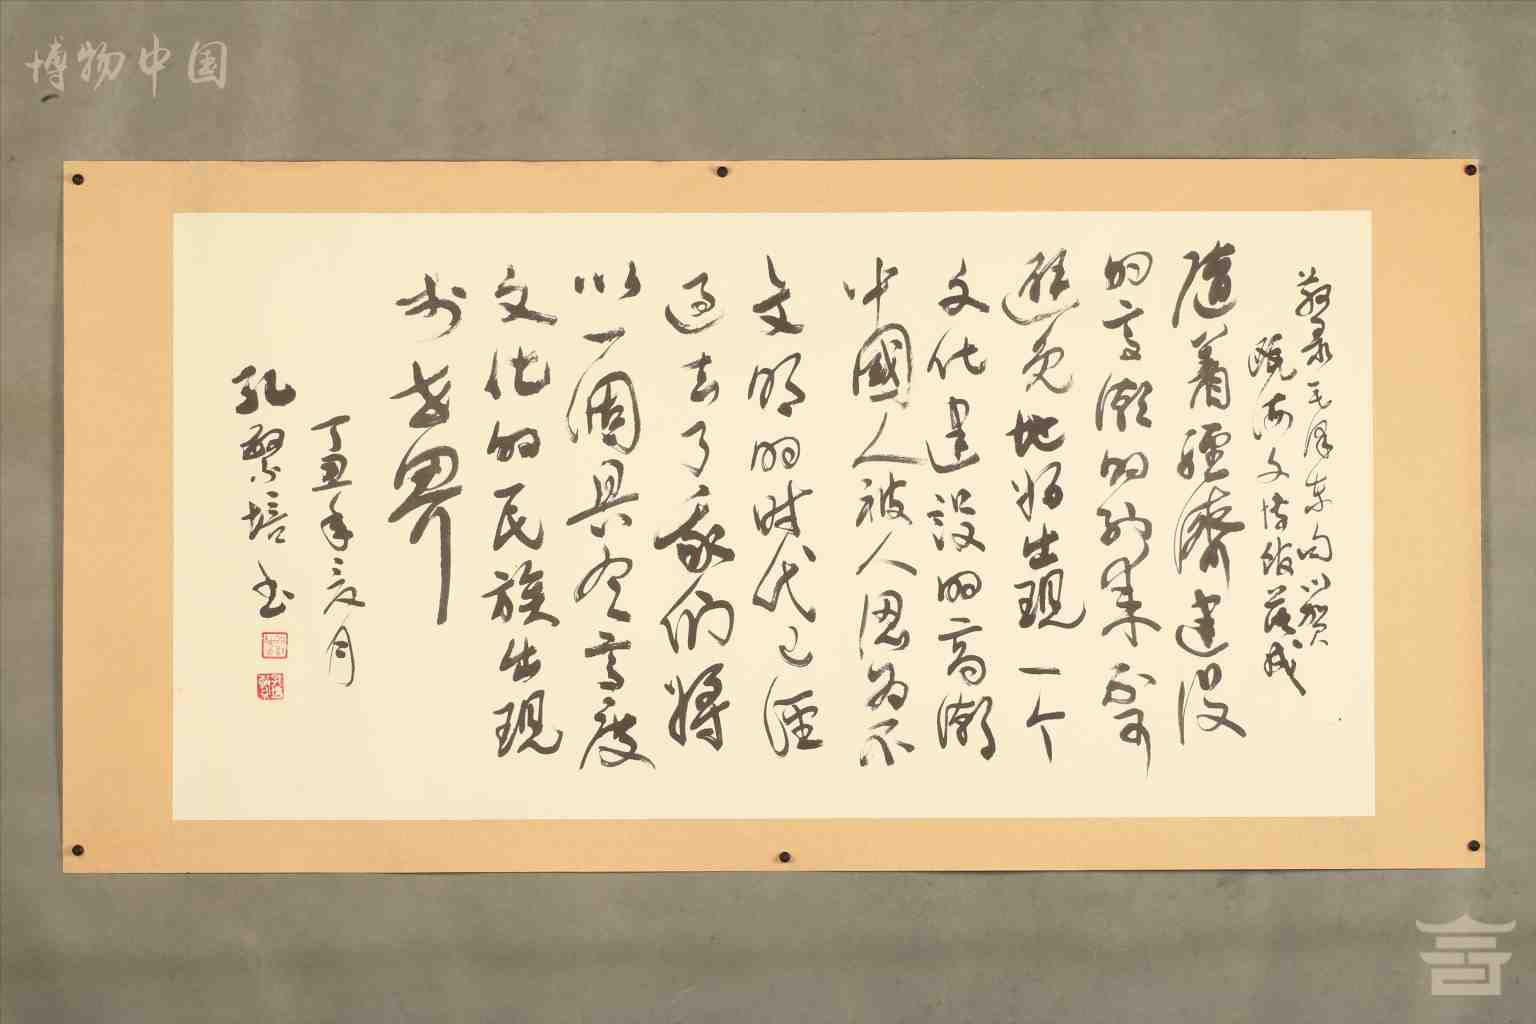 博物中国
敬录毛泽东句以贺
瓯海文博馆落成
随着經濟建设
的高潮的到来不可
避免地将出現一个
文化建设的高潮
中國人被人思为不
文明的时代已經
过去了我们将
以一個具有高度
文化的民族出現
於世界
丁丑年夏月
孔繁培书